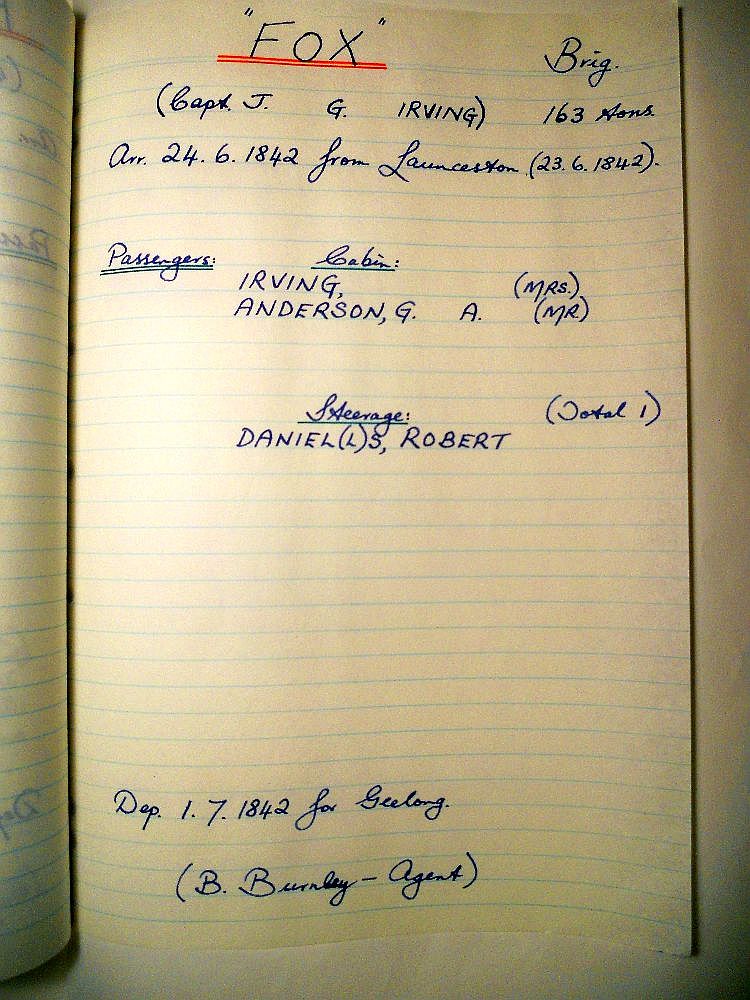 "FOX" Brig.
(Capt. J. G. IRVING) 163 tons.
Arr. 24. 6. 1842 from Launceston (23. 6. 1842).
Passengers: Cabin:
IRVING, (MRS.)
ANDERSON, G. A. (MR.)
Steerage: (Total 1)
DANIEL(L)S, ROBERT
Dep. 1. 7. 1842 for Geelong.
(B. Burnley - Agent)